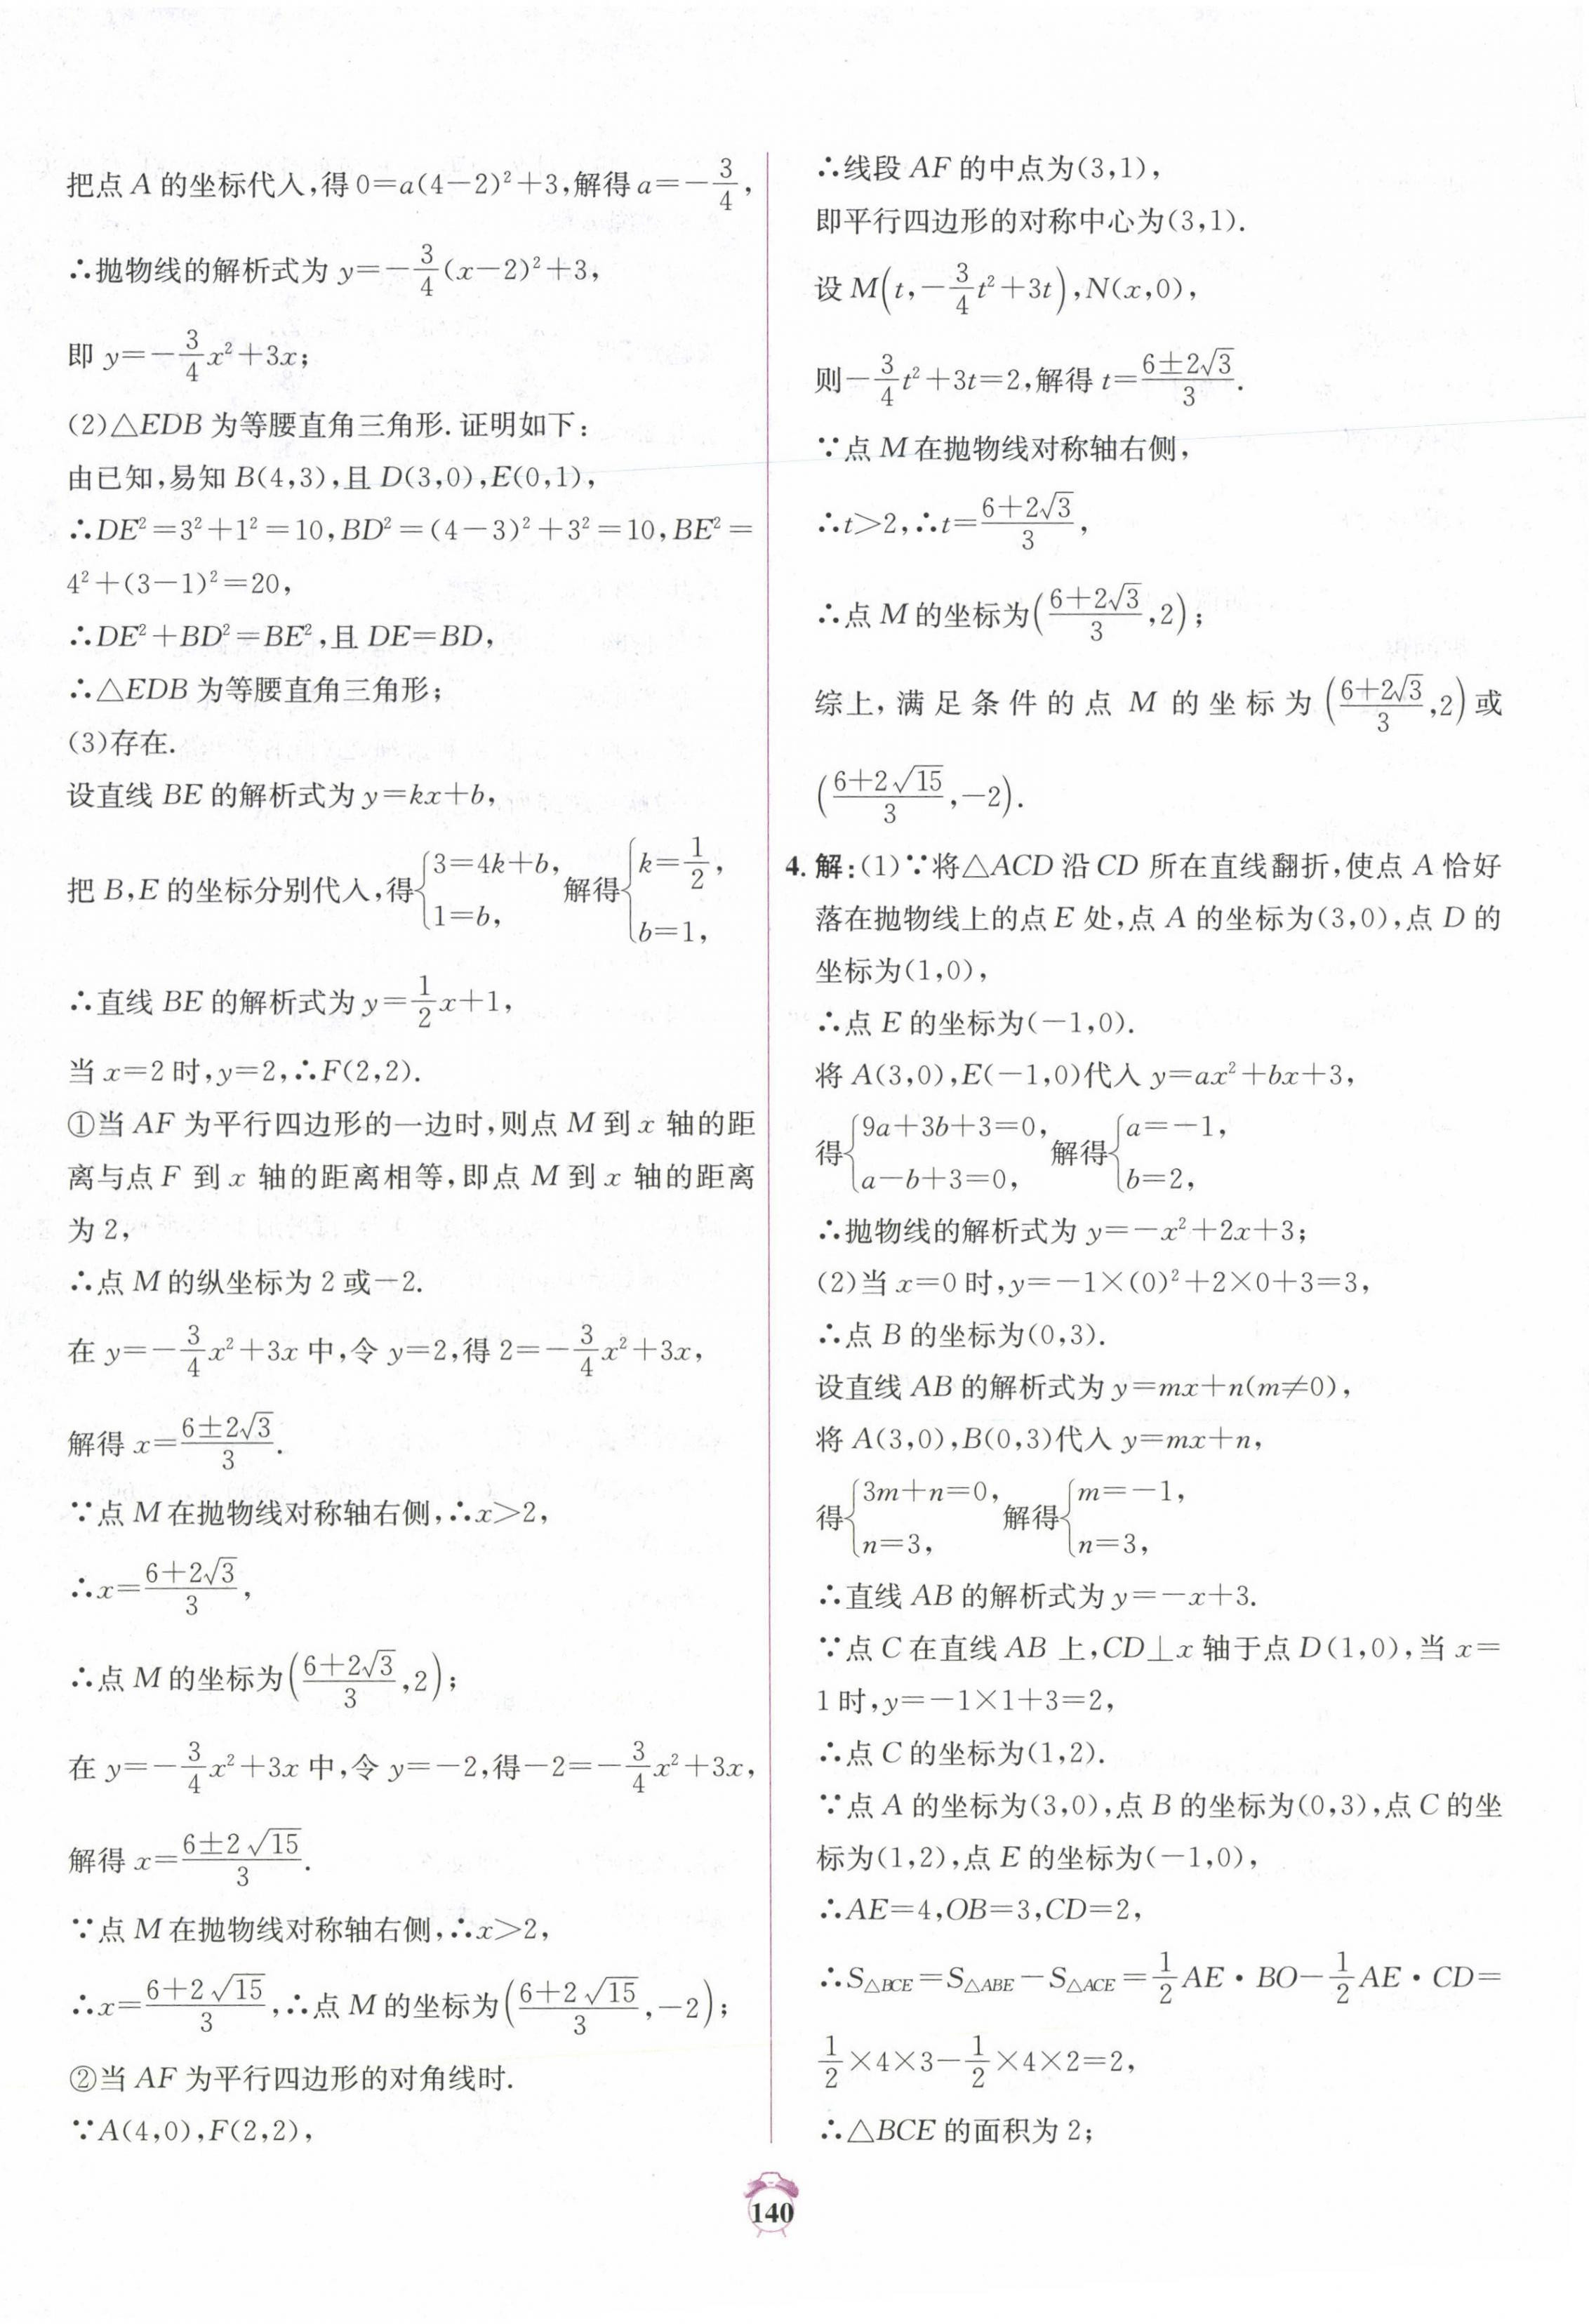 把点 A 的坐标代入,得 0=a(4-2)²+3,解得 a=-3/4,
∴抛物线的解析式为 y=-3/4(x-2)²+3,
即 y=-3/4x²+3x;
(2)△EDB 为等腰直角三角形. 证明如下:
由已知,易知 B(4,3),且 D(3,0),E(0,1),
∴DE²=3²+1²=10,BD²=(4-3)²+3²=10,BE²=
4²+(3-1)²=20,
∴DE²+BD²=BE²,且 DE=BD,
∴△EDB 为等腰直角三角形;
(3)存在.
设直线 BE 的解析式为 y=kx+b,
把 B,E 的坐标分别代入,得{3=4k+b, 1=b, 解得{k=1/2, b=1,
∴直线 BE 的解析式为 y=1/2x+1,
当 x=2 时,y=2,∴F(2,2).
①当 AF 为平行四边形的一边时,则点 M 到 x 轴的距
离与点 F 到 x 轴的距离相等,即点 M 到 x 轴的距离
为 2,
∴点 M 的纵坐标为 2 或-2.
在 y=-3/4x²+3x 中,令 y=2,得 2=-3/4x²+3x,
解得 x=(6±2√3)/3.
∵点 M 在抛物线对称轴右侧,∴x>2,
∴x=(6+2√3)/3,
∴点 M 的坐标为((6+2√3)/3,2);
在 y=-3/4x²+3x 中,令 y=-2,得-2=-3/4x²+3x,
解得 x=(6±2√15)/3.
∵点 M 在抛物线对称轴右侧,∴x>2,
∴x=(6+2√15)/3,∴点 M 的坐标为((6+2√15)/3,-2);
②当 AF 为平行四边形的对角线时.
∵A(4,0),F(2,2),
∴线段 AF 的中点为(3,1),
即平行四边形的对称中心为(3,1).
设 M(t,-3/4t²+3t),N(x,0),
则-3/4t²+3t=2,解得 t=(6±2√3)/3.
∵点 M 在抛物线对称轴右侧,
∴t>2,∴t=(6+2√3)/3,
∴点 M 的坐标为((6+2√3)/3,2);
综上,满足条件的点 M 的坐标为((6+2√3)/3,2)或
((6+2√15)/3,-2).
4. 解:(1)∵将△ACD 沿 CD 所在直线翻折,使点 A 恰好
落在抛物线上的点 E 处,点 A 的坐标为(3,0),点 D 的
坐标为(1,0),
∴点 E 的坐标为(-1,0).
将 A(3,0),E(-1,0)代入 y=ax²+bx+3,
得{9a+3b+3=0, a-b+3=0, 解得{a=-1, b=2,
∴抛物线的解析式为 y=-x²+2x+3;
(2)当 x=0 时,y=-1×(0)²+2×0+3=3,
∴点 B 的坐标为(0,3).
设直线 AB 的解析式为 y=mx+n(m≠0),
将 A(3,0),B(0,3)代入 y=mx+n,
得{3m+n=0, n=3, 解得{m=-1, n=3,
∴直线 AB 的解析式为 y=-x+3.
∵点 C 在直线 AB 上,CD⊥x 轴于点 D(1,0),当 x=
1 时,y=-1×1+3=2,
∴点 C 的坐标为(1,2).
∵点 A 的坐标为(3,0),点 B 的坐标为(0,3),点 C 的坐
标为(1,2),点 E 的坐标为(-1,0),
∴AE=4,OB=3,CD=2,
∴S△BCE=S△ABE-S△ACE=1/2AE·BO-1/2AE·CD=
1/2×4×3-1/2×4×2=2,
∴△BCE 的面积为 2;
140